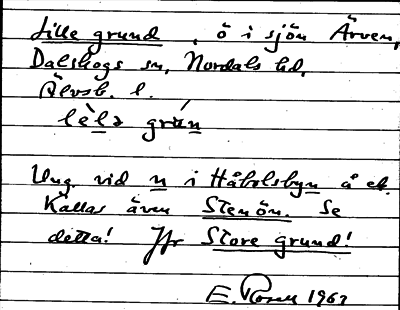 Lille grund, ö i sjön Ärven,
Dalskogs sn, Nordals hd,
Älvsb. l.
Ung. vid n i Håbolsbyn å ek.
Kallas även Stenön. Se
detta! Jfr Store grund!
E. Rosell 1967